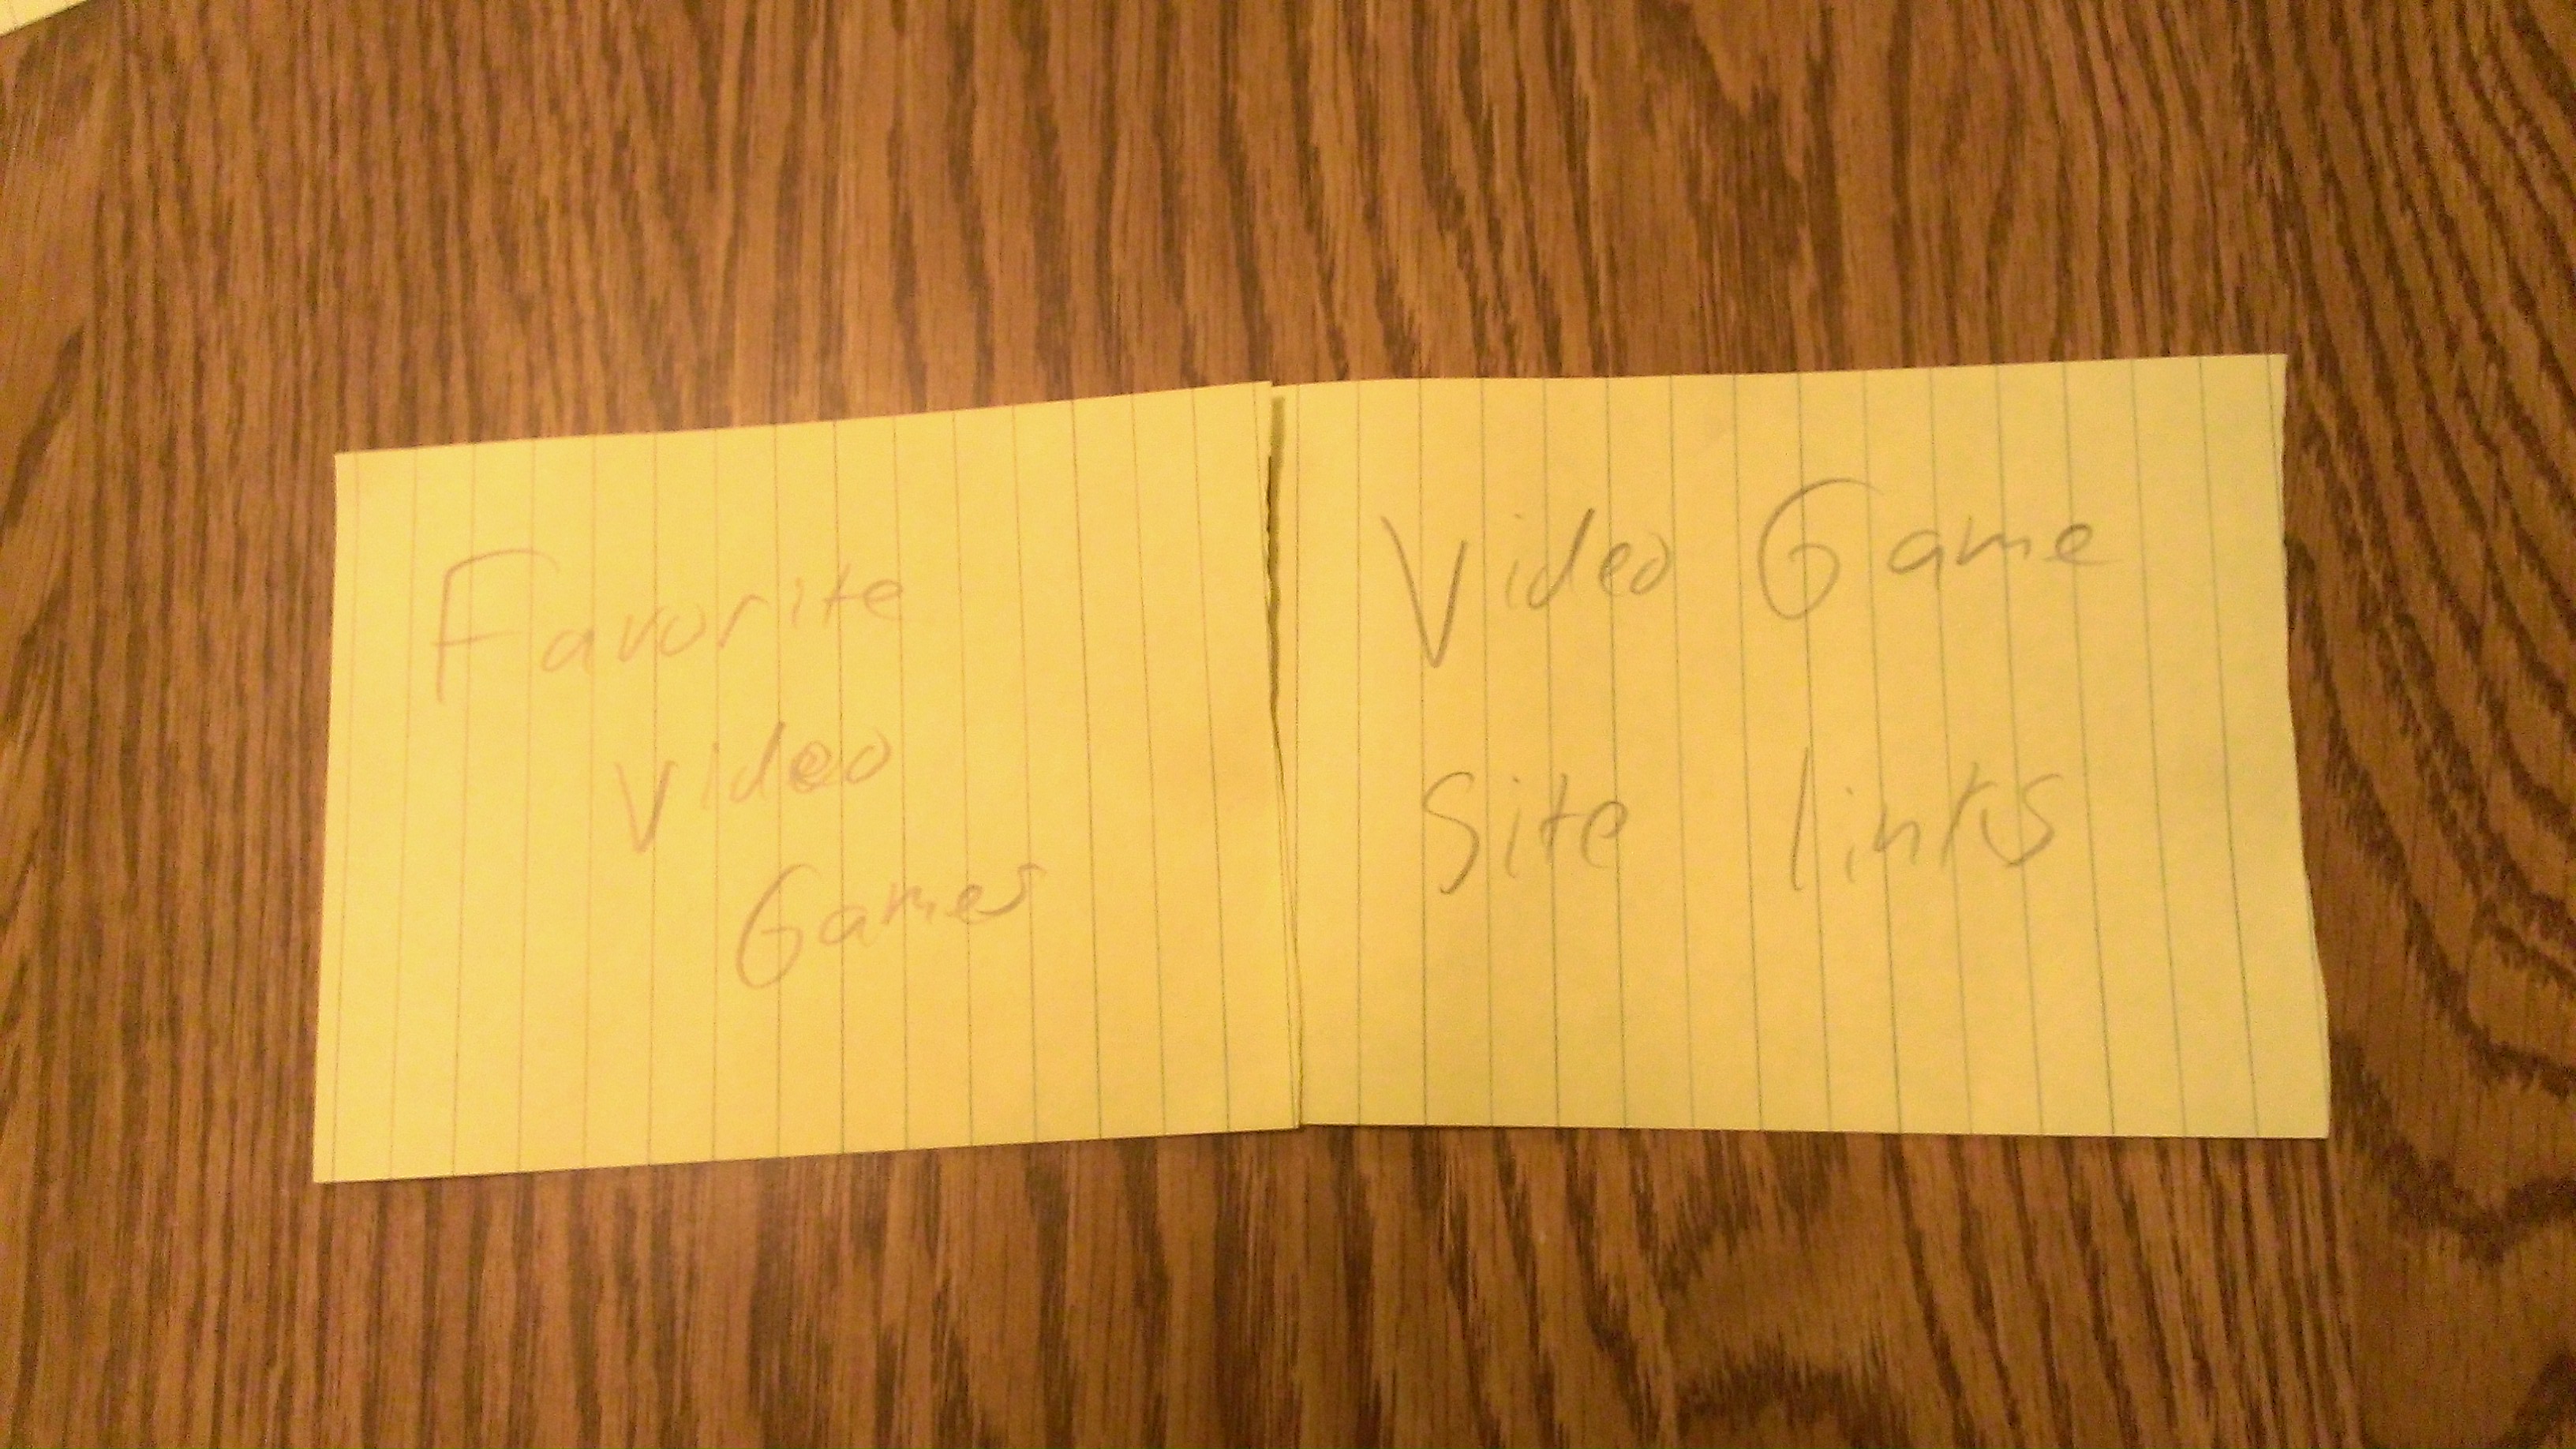 Favorite
Video
Games
Video Game
Site links